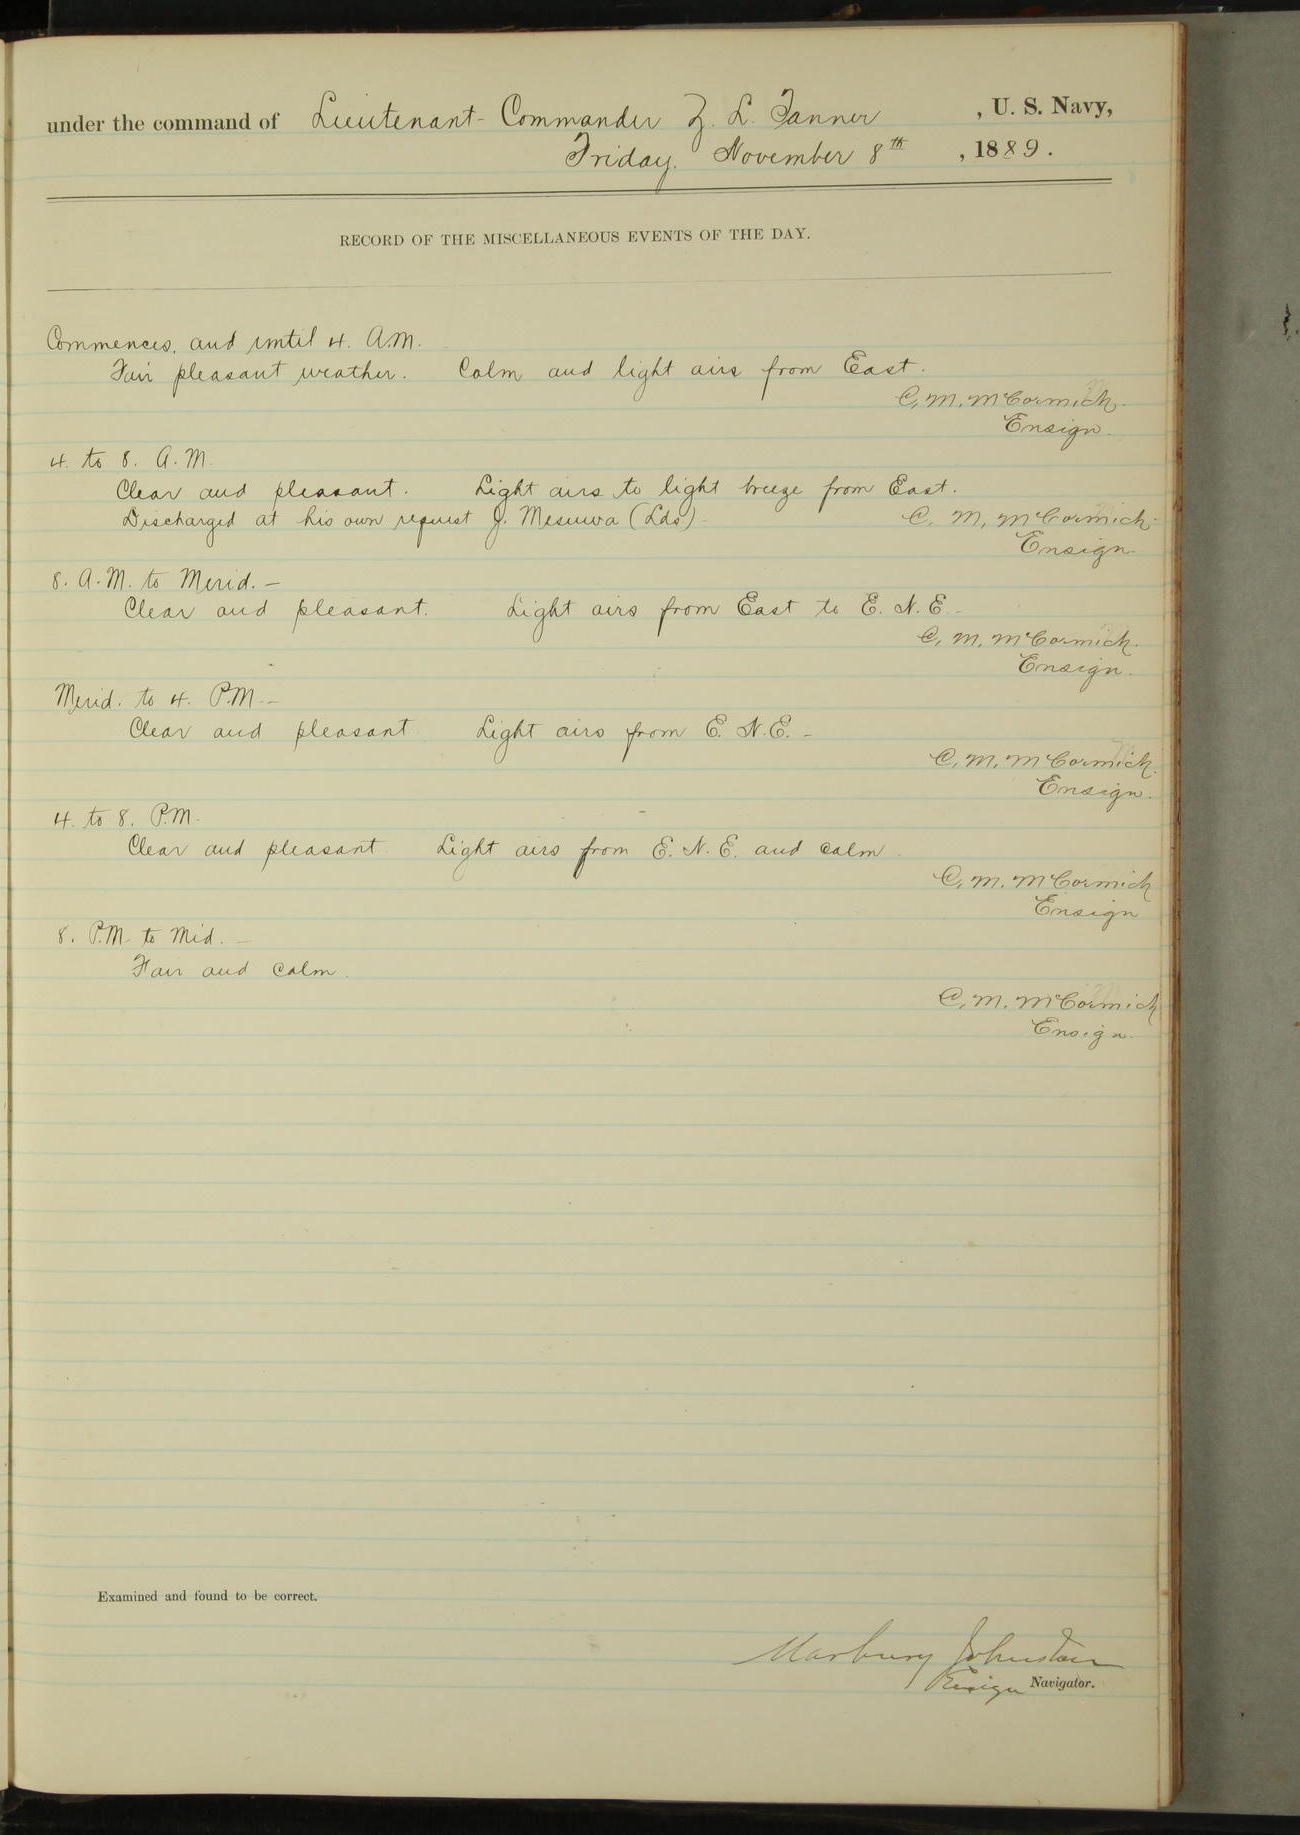 under the command of Lieutenant-Commander Z. L. Tanner, U. S. Navy,
Friday, November 8th, 1889.
RECORD OF THE MISCELLANEOUS EVENTS OF THE DAY.
Commences, and until 4. A.M.
Fair pleasant weather. Calm and light airs from East.
C. M. McCormick.
Ensign.
4. to 8. A.M.
Clear and pleasant. Light airs to light breeze from East.
Discharged at his own request J. (Lds)
C. M. McCormick.
Ensign.
8. A.M. to Merid. –
Clear and pleasant. Light airs from East to E. N. E. –
C. M. McCormick.
Ensign.
Merid. to 4. P.M. –
Clear and pleasant Light airs from E. N. E. –
C. M. McCormick.
Ensign.
4. to 8. P.M.
Clear and pleasant Light airs from E. N. E. and calm.
C. M. McCormick
Ensign
8. P.M. to Mid. –
Fair and calm.
C. M. McCormick
Ensign.
Examined and found to be correct.
Marbury Johnston
Ensign Navigator.